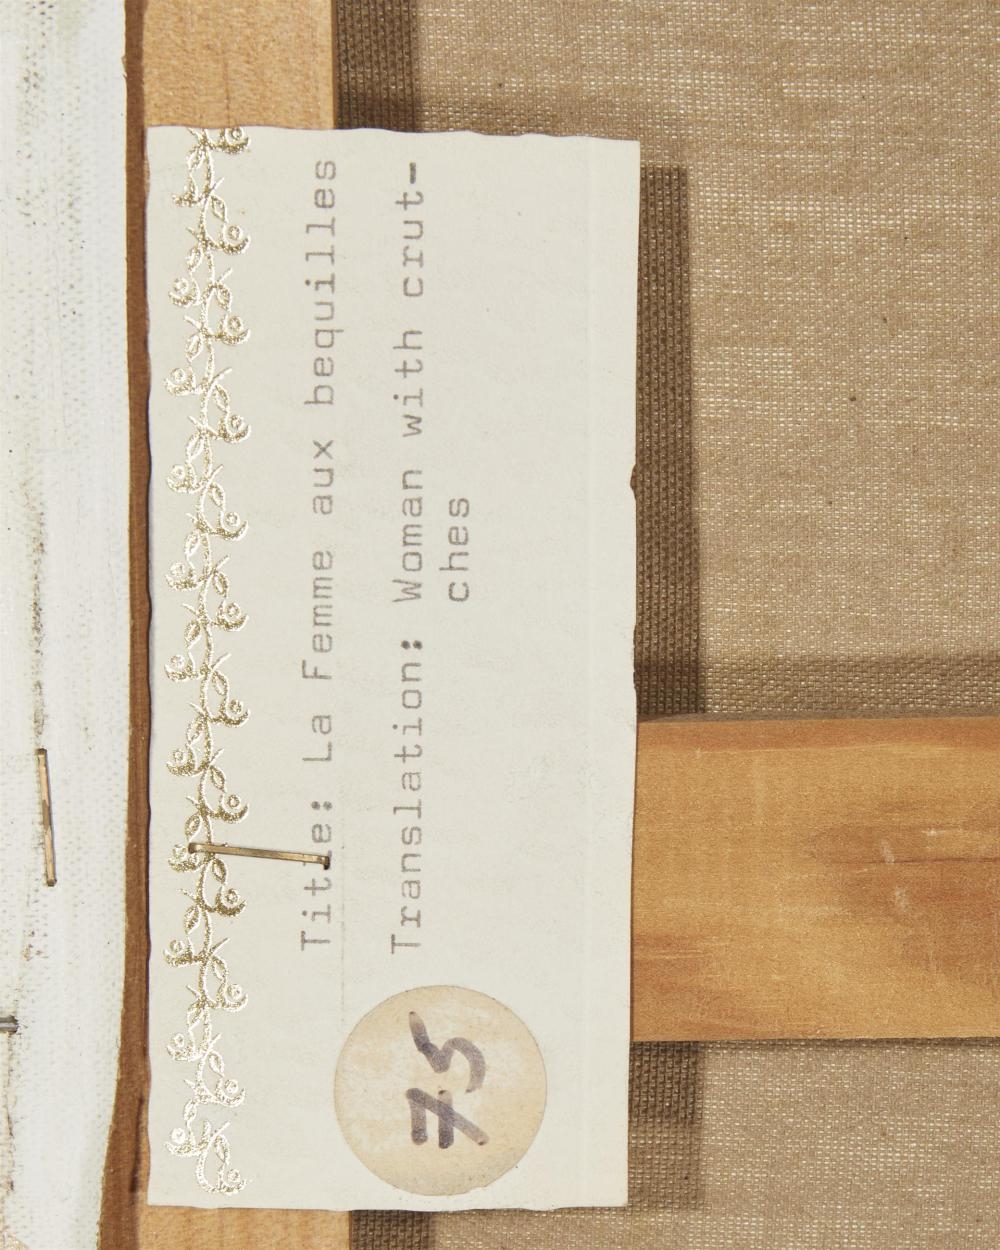 Title: La Femme aux bequilles
Translation: Woman with crut-
ches
75